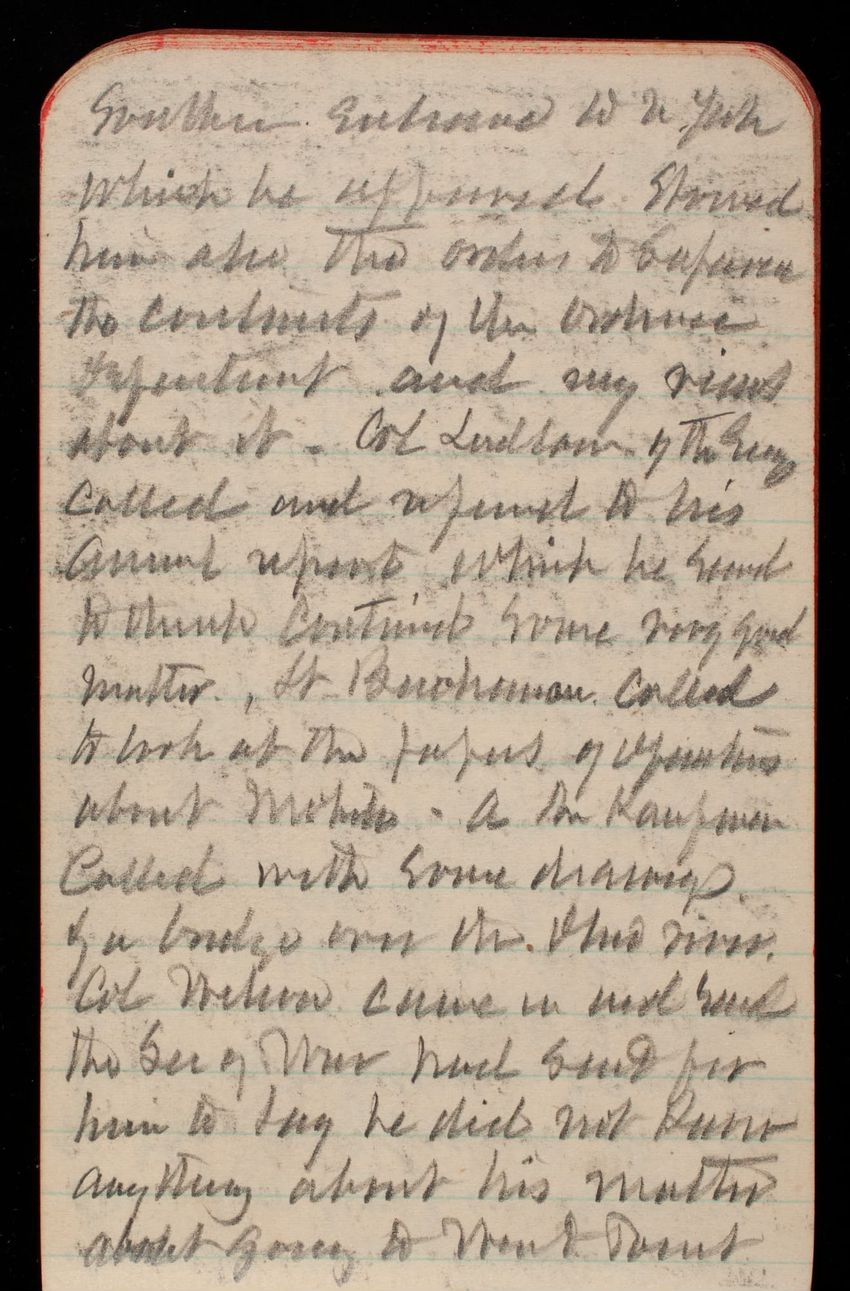 Southern Entrance to N. York
which he approved Showed
him also the orders to Examin
the contracts of the Ordnance
Department and my views
about it - Col Ludlow of the Eng
Called and referred to his
Annual report which he said
to think Contained some very good
matter. Lt Buchanan Called
to look at the papers of operations
about Mobile - A Mr Kaufman
Called with some drawings
for bridge over the Ohio river.
Col Wilson came in and said
the Sec of War had sent for
him to say he did not know
anything about his matter
about going to West Point